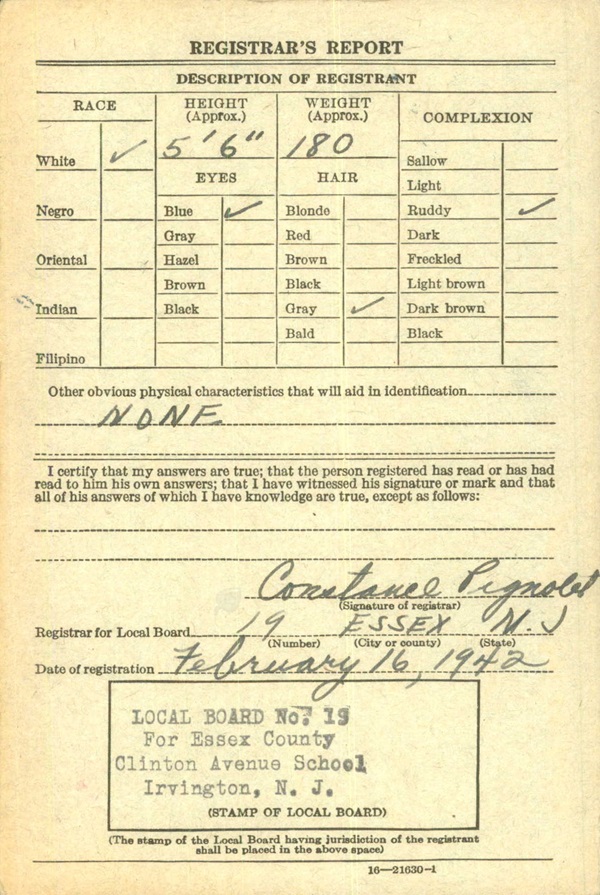 REGISTRAR'S REPORT
DESCRIPTION OF REGISTRANT
RACE
HEIGHT (Approx.)
WEIGHT (Approx.)
COMPLEXION
White ✓
5'6"
180
Sallow
EYES
HAIR
Light
Negro
Blue ✓
Blonde
Ruddy ✓
Gray
Red
Dark
Oriental
Hazel
Brown
Freckled
Brown
Black
Light brown
Indian
Black
Gray ✓
Dark brown
Bald
Black
Filipino
Other obvious physical characteristics that will aid in identification
NONE
I certify that my answers are true; that the person registered has read or has had
read to him his own answers; that I have witnessed his signature or mark and that
all of his answers of which I have knowledge are true, except as follows:
Constance Pignolet
(Signature of registrar)
Registrar for Local Board 19 ESSEX N.J
(Number) (City or county) (State)
Date of registration February 16, 1942
LOCAL BOARD No. 19
For Essex County
Clinton Avenue School
Irvington, N. J.
(STAMP OF LOCAL BOARD)
(The stamp of the Local Board having jurisdiction of the registrant
shall be placed in the above space)
16—21630-1